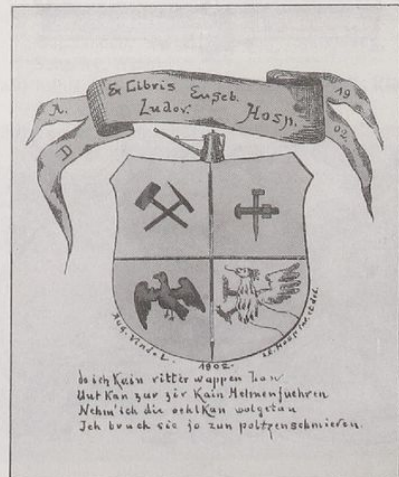 Ex Libris Euseb.
Ludov. Hosp.
A. D 19 02.
Aug. Vindel.
1902.
do ich Kain ritter wappen han
Unt Kan zur zir Kain Helmenfuehren
Nehm' ich die oehlKan wolgetan
Ich bruch sie jo zun poltzenschmieren.